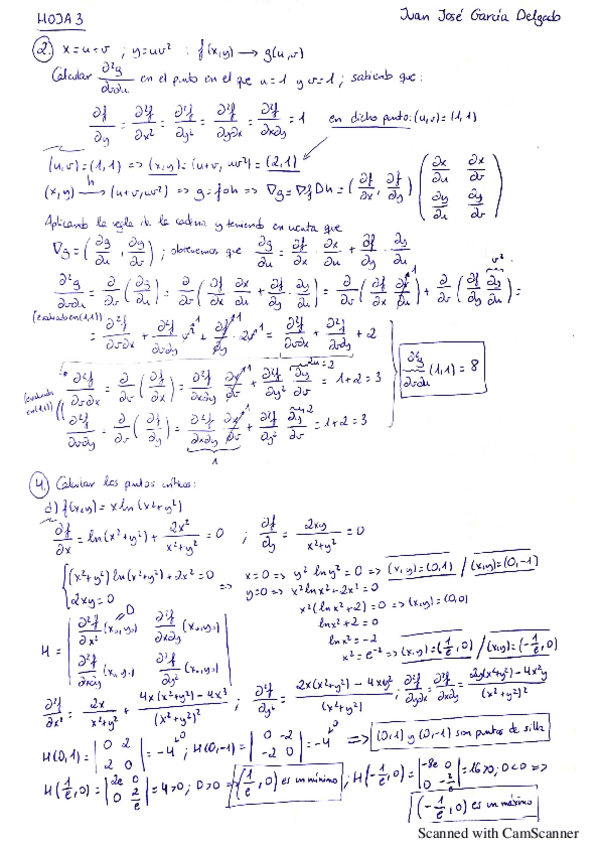 HOJA 3 Juan José García Delgado
2. x=u+v ; y=uv² ; f(x,y) → g(u,v)
Calcular ∂²g/∂v∂u en el punto en el que u=1 y v=1; sabiendo que:
∂f/∂y = ∂²f/∂x² = ∂²f/∂y² = ∂²f/∂y∂x = ∂²f/∂x∂y = 1 en dicho punto: (u,v)=(1,1)
(u,v)=(1,1) => (x,y)=(u+v, uv²)=(2,1)
(x,y) →h (u+v,uv²) => g=f∘h => ∇g=∇f Dh = (∂f/∂x, ∂f/∂y) (∂x/∂u ∂x/∂v ∂y/∂u ∂y/∂v)
Aplicando la regla de la cadena y teniendo en cuenta que
∇g = (∂g/∂u, ∂g/∂v); obtenemos que ∂g/∂u = ∂f/∂x · ∂x/∂u + ∂f/∂y · ∂y/∂u
∂²g/∂v∂u = ∂/∂v (∂g/∂u) = ∂/∂v (∂f/∂x ∂x/∂u + ∂f/∂y · ∂y/∂u) = ∂/∂v (∂f/∂x ∂x/∂u 1) + ∂/∂v (∂f/∂y ∂y/∂u v²) =
(evaluab en (1,1)) = ∂²f/∂v∂x + ∂²f/∂v∂y v² 1 + ∂f/∂y 1 · 2v 1 = ∂²f/∂v∂x + ∂²f/∂v∂y + 2
(evaluab en (1,1)) ∂²f/∂v∂x = ∂/∂v (∂f/∂x) = ∂²f/∂x² ∂x/∂v 1 + ∂²f/∂y∂x ∂y/∂v 2u=2 = 1+2 = 3
∂²f/∂v∂y = ∂/∂v (∂f/∂y) = ∂²f/∂x∂y ∂x/∂v 1 + ∂²f/∂y² ∂y/∂v 2 = 1+2 = 3
1
∂²g/∂v∂u (1,1) = 8
4. Calcular los puntos críticos:
d) f(x,y) = x ln(x²+y²)
∂f/∂x = ln(x²+y²) + 2x²/(x²+y²) = 0 ; ∂f/∂y = 2xy/(x²+y²) = 0
(x²+y²) ln(x²+y²) + 2x² = 0 => x=0 => y² ln y² = 0 => (x,y)=(0,1) / (x,y)=(0,-1)
2xy = 0 y=0 => x² ln x² + 2x² = 0
x²(ln x² + 2) = 0 => (x,y)=(0,0)
ln x² + 2 = 0
ln x² = -2
x² = e⁻² => (x,y)=(1/e, 0) / (x,y)=(-1/e, 0)
H = | ∂²f/∂x² (x₀,y₀) ∂²f/∂x∂y (x₀,y₀) |
| ∂²f/∂x∂y (x₀,y₀) ∂²f/∂y² (x₀,y₀) |
∂²f/∂x² = 2x/(x²+y²) + (4x(x²+y²) - 4x³)/(x²+y²)² ; ∂²f/∂y² = (2x(x²+y²) - 4xy²)/(x²+y²)² ; ∂²f/∂y∂x = ∂²f/∂x∂y = (2y(x²+y²) - 4x²y)/(x²+y²)²
H(0,1) = |0 2 2 0| = -4 <0 ; H(0,-1) = |0 -2 -2 0| = -4 <0 => (0,1) y (0,-1) son puntos de silla
H(1/e, 0) = |2e 0 0 2/e| = 4>0; D>0 => (1/e, 0) es un mínimo ; H(-1/e, 0) = |-8e 0 0 -2/e| = 16>0; D<0 =>
(-1/e, 0) es un máximo
Scanned with CamScanner